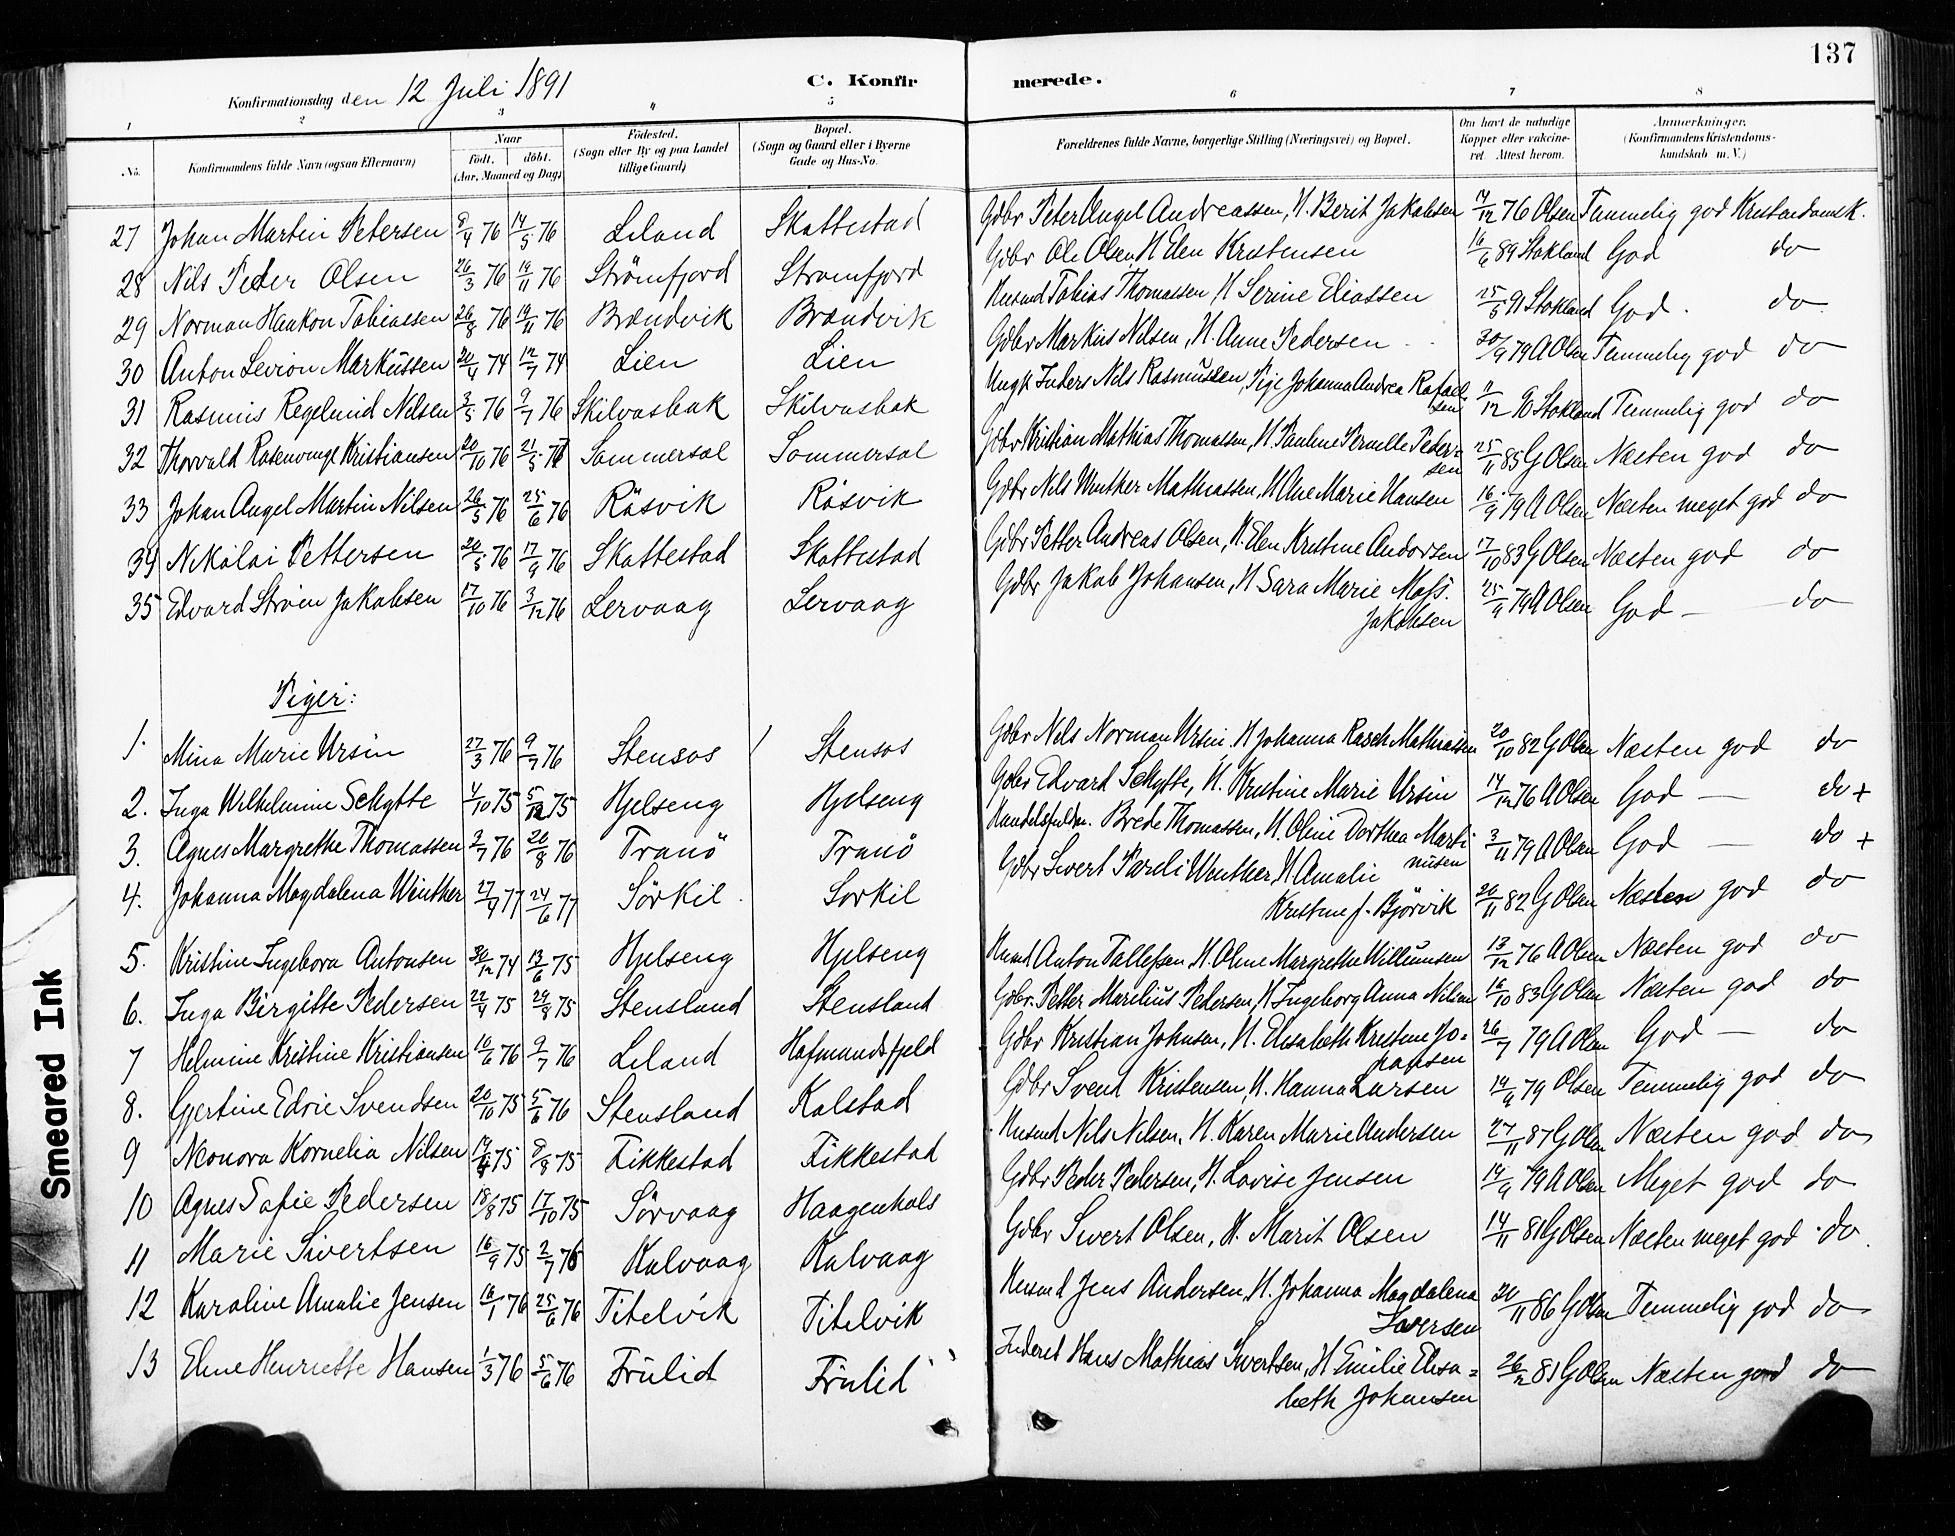 137
Konfirmationsdag den 12 Juli 1891 C. Konfirmerede.
1 2 3 4 5 6 7 8
No. Konfirmandens fulde Navn (ogsaa Efternavn) Naar Født. døbt. (Aar, Maaned og Dag) Fødested. (Sogn eller By og paa Landet tillige Gaard) Bopæl. (Sogn og Gaard eller i Byerne Gade og Hus-No. Forældrenes fulde Navne, borgerlige Stilling (Næringsvei) og Bopæl. Om havt de naturlige Kopper eller vakcineret. Attest herom. Anmerkninger. (Konfirmandens Kristendomskundskab m. V.)
27 Johan Martin Petersen 9/4 76 14/5 76 Leland Skattestad Gdbr Peter Angel Andreassen, H. Berit Jakobsen 17/12 76 Olsen Temmelig god Kristendomsk.
28 Nils Peder Olsen 26/3 76 19/11 76 Strömfjord Strömfjord Gdbr Ole Olsen H Elen Kristensen 16/6 89 Stokland God do
29 Norman Haakon Tobiassen 26/8 76 19/11 76 Brændvik Brændvik Husmd Tobias Thomassen, H Serine Eliassen 25/5 91 Stokland God. do
30 Anton Levion Markussen 20/4 74 12/7 74 Lien Lien Gdbr Markus Nilsen, H. Anne Pedersen 30/9 79 A Olsen Temmelig god do
31 Rasmus Regelund Nilsen 3/5 76 9/7 76 Skilvasbak Skilvasbak Ungk Inders Nils Rasmussen, Pige Johanna Andrea Rafaelsen 11/12 90 Stokland Temmelig god do
32 Thorvald Rosenvinge Kristiansen 20/10 76 21/5 77 Sommersel Sommersel Gdbr Kristian Mathias Thomassen, H. Pauline Pernelle Pedersen 25/11 85 G Olsen Næsten god do
33 Johan Angel Martin Nilsen 26/5 76 25/6 76 Rösvik Rösvik Gdbr Nils Winther Mathiassen, H Ane Marie Hansen 16/9 79 A Olsen Næsten meget god do
34 Nikolai Pettersen 20/5 76 17/9 76 Skattestad Skattestad Gdbr Petter Andreas Olsen, H. Elen Kristine Andorsen 17/10 83 G Olsen Næsten god do
35 Edvard Strøm Jakobsen 17/10 76 3/12 76 Lervaag Lervaag Gdbr Jakob Johansen, H Sara Marie Jakobsen 25/9 79 A Olsen God — do
Piger:
1. Mina Marie Ursin 27/3 76 9/7 76 Stensos Stensos Gdbr Nils Norman Ursin. H Johanna Rasch Mathiassen 20/10 82 G Olsen Næsten god do
2. Inga Wilhelmine Schytte 4/10 75 5/12 75 Hjelseng Hjelseng Gdbr Edvard Schytte, H. Kristine Marie Ursin 17/12 76 A Olsen God — do +
3. Agnes Margrethe Thomassen 2/7 76 20/8 76 Tranö Tranö Handelsfuldm. Brede Thomassen, H. Oline Dorthea Martinusen 3/11 79 A Olsen God — do +
4. Johanna Magdalena Winther 27/4 77 24/6 77 Sörkil Sörkil Gdbr Sivert Pareli Winther, H Amalie Kristine f. Björvik 20/11 82 G Olsen Næsten god do
5. Kristine Ingeborg Antonsen 30/12 74 13/6 75 Hjelseng Hjelseng Husmd Anton Tollefsen, H. Oline Margrethe Willumsen 13/12 76 A Olsen Næsten god do
6. Inga Birgitte Pedersen 22/4 75 29/8 75 Stensland Stensland Gdbr. Petter Marelius Pedersen, H Ingeborg Anna Nilsen 16/10 83 G Olsen Næsten god do
7 Helmine Kristine Kristiansen 10/6 76 9/7 76 Leland Hofmandsfjeld Gdbr Kristian Johnsen, H. Elisabeth Kristine Johansen 26/7 79 A Olsen God — do
8. Gjertine Edvie Svendsen 20/10 75 5/6 76 Stensland Kalstad Gdbr Svend Kristensen, H. Hanna Larsen 19/9 79 Olsen Temmelig god do
9 Neonora Kornelia Nilsen 17/4 75 8/8 75 Fikkestad Fikkestad Husmd Nils Nilsen, H. Karen Marie Andersen 27/11 87 G Olsen Næsten god do
10 Agnes Sofie Pedersen 18/8 75 17/10 75 Sörvaag Haagenhals Gdbr Peder Pedersen, H. Lovise Jensen 19/9 79 A Olsen Meget god do
11 Marie Sivertsen 16/9 75 2/7 76 Kalvaag Kalvaag Gdbr Sivert Olsen, H. Marit Olsen 14/11 81 G Olsen Næsten meget god do
12 Karoline Amalie Jensen 16/1 76 25/6 76 Titelvik Titelvik Husmd Jens Andersen, H. Johanna Magdalena Iversen 20/11 86 G Olsen Temmelig god do
13 Eline Henriette Hansen 1/3 76 5/6 76 Frülid Frülid Inderst Hans Mathias Sivertsen, H Emilie Elisabeth Johansen 26/2 81 G Olsen Næsten god do
Smeared Ink